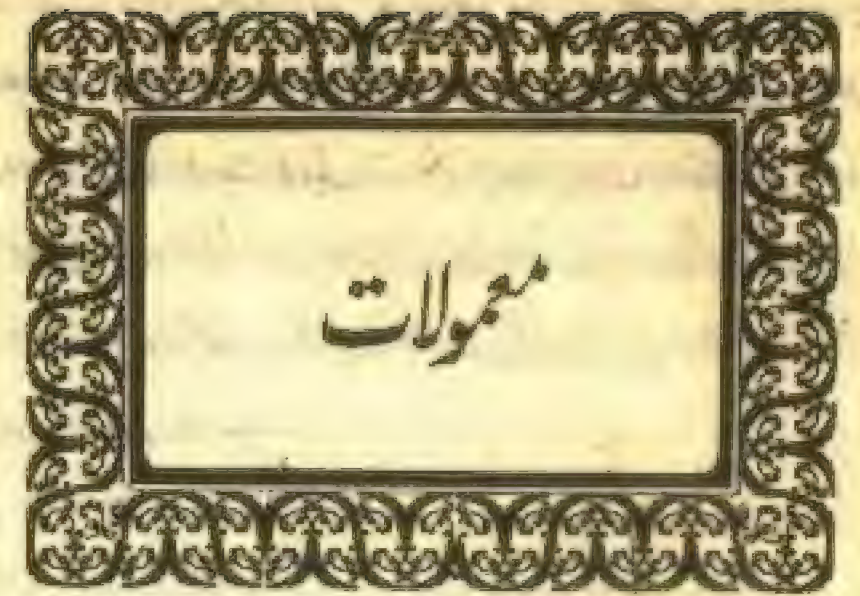 معمولات